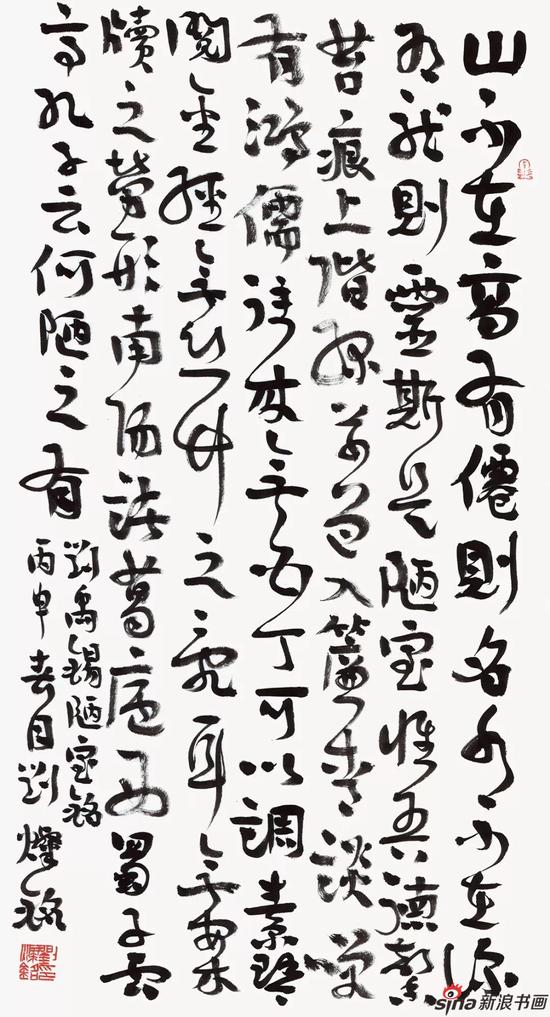 山不在高有僊則名水不在深
有龍則靈斯是陋室惟吾德馨
苔痕上階綠草色入簾青談笑
有鴻儒往來無白丁可以調素琴
閱金經無丝竹之亂耳無案
牘之勞形南陽諸葛廬西蜀子雲
亭孔子云何陋之有
劉禹錫陋室銘
丙申春月劉燦銘
sina 新浪书画